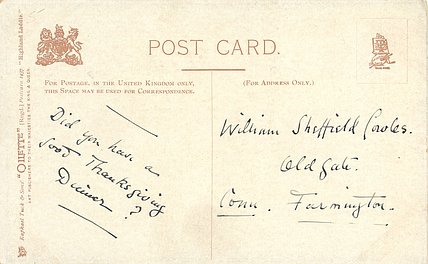 POST CARD.
FOR POSTAGE, IN THE UNITED KINGDOM ONLY,
THIS SPACE MAY BE USED FOR CORRESPONDENCE.
(FOR ADDRESS ONLY.)
Did you have a
good Thanksgiving
Dinner?
William Sheffield Cowles.
Old gate.
Conn. Farmington.
Raphael Tuck & Sons' "OILETTE" [Regd.] Postcard 9477. "Highland Laddie."
ART PUBLISHERS TO THEIR MAJESTIES THE KING & QUEEN.